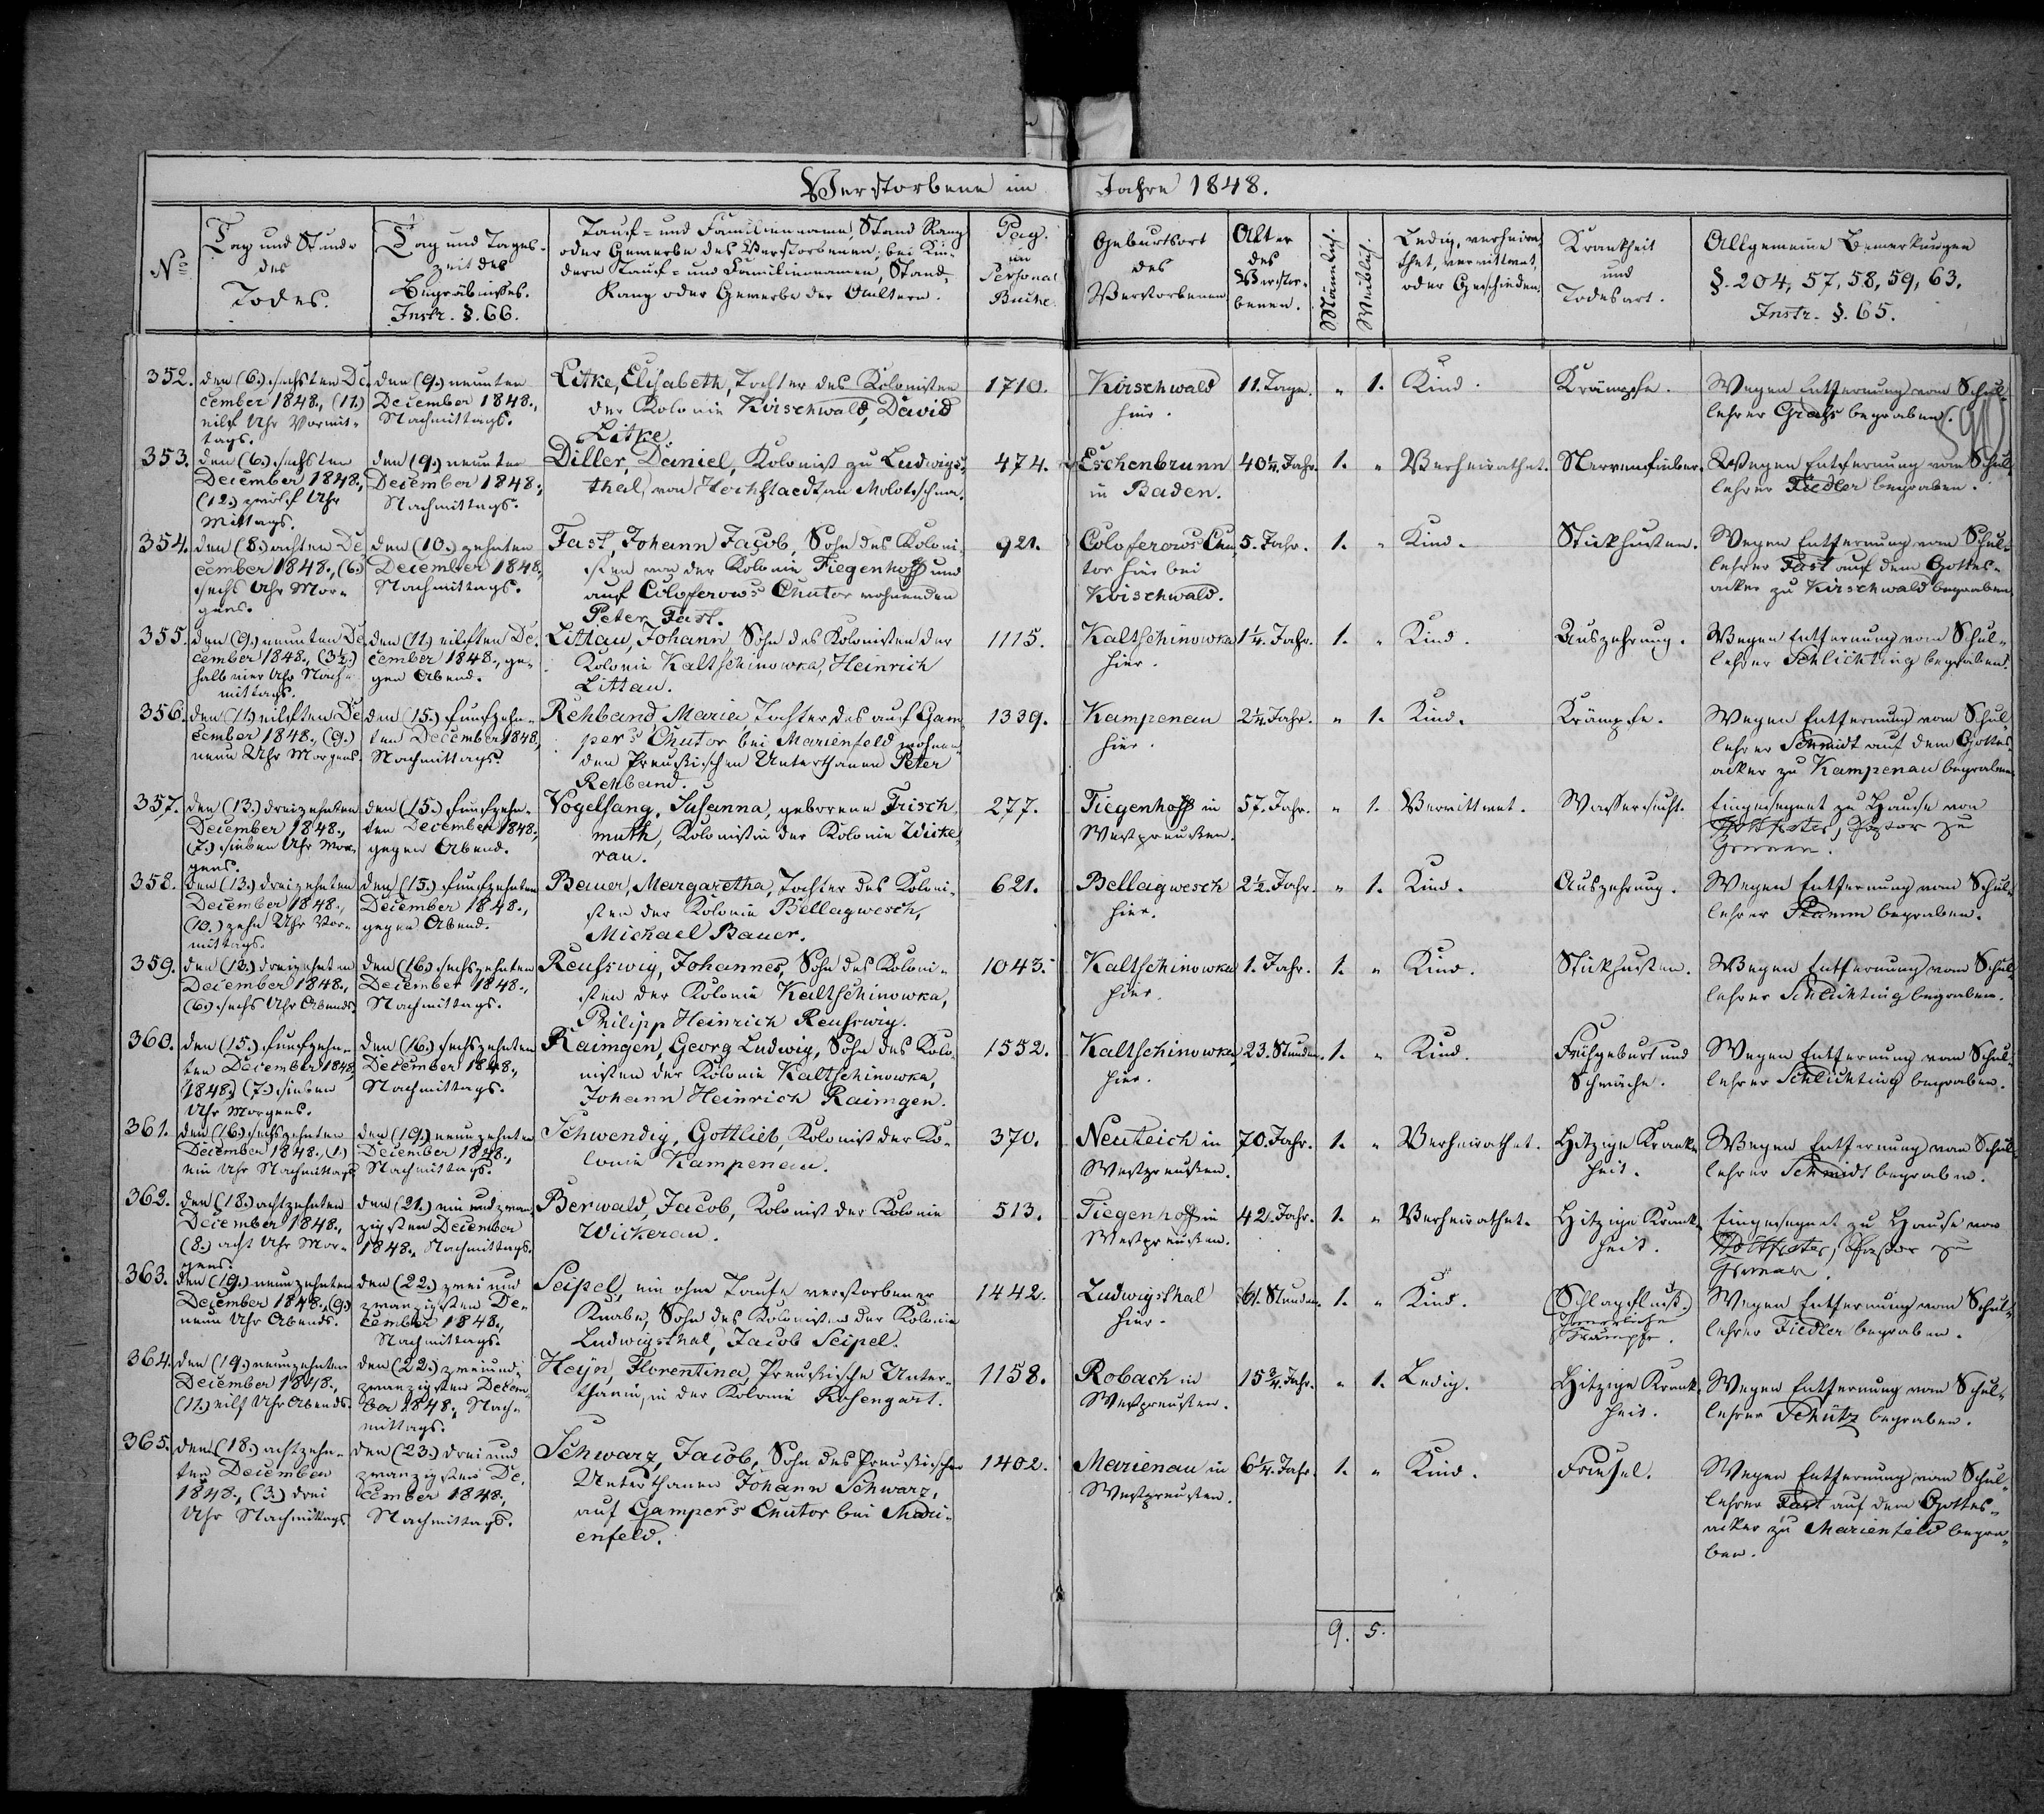 Verstorbene im Jahre 1848.
No
Tag und Stunde
des
Todes.
Tag und Tages-
zeit des
Begräbnisses.
Instr. §. 66.
Tauf- und Familienname, Stand Rang
oder Gewerbe des Verstorbenen; bei Kin-
dern Tauf- und Familiennamen, Stand,
Rang oder Gewerbe der Aeltern.
Pag.
im
Personal
Buche.
Geburtsort
des
Verstorbenen
Alter
des
Verstor-
benen.
Männlich.
Weiblich.
Ledig, verheira-
thet, verwittwet,
oder Geschieden.
Krankheit
und
Todesart.
Allgemeine Bemerkungen
§. 204, 57, 58, 59, 63.
Instr. §. 65.
352.
den (6.) sechsten De-
cember 1848., (11.)
eilf Uhr Vormit-
tags.
den (9.) neunten
December 1848.,
Nachmittags.
Litke, Elisabeth, Tochter des Kolonisten
der Kolonie Kirschwald, David
Litke.
1710.
Kirschwald
hier.
11. Tage.
" 1.
Kind.
Krämpfe.
Wegen Entfernung vom Schul-
lehrer begraben.
353.
den (6.) sechsten
December 1848.,
(12.) zwölf Uhr
Mittags.
den (9.) neunten
December 1848.,
Nachmittags.
Diller, Daniel, Kolonist zu Ludwigs-
thal, von Hochstaedt an Molotschna.
474.
Eschenbrunn
in Baden.
40¼. Jahr.
1. "
Verheirathet.
Nervenfieber.
Wegen Entfernung vom Schul-
lehrer Fiedler begraben.
354.
den (8.) achten De-
cember 1848., (6.)
sechs Uhr Mor-
gens.
den (10.) zehnten
December 1848.,
Nachmittags.
Fast, Johann Jacob, Sohn des Koloni-
sten von der Kolonie Tiegenhoff und
auf Coloferows Chutor wohnenden
Peter Fast.
921.
Coloferows Chu-
tor hier bei
Kirschwald.
5. Jahr.
1. "
Kind.
Stickhusten.
Wegen Entfernung vom Schul-
lehrer Fast auf dem Gottes-
acker zu Kirschwald begraben.
355.
den (9.) neunten De-
cember 1848., (3½.)
halb vier Uhr Nach-
mittags.
den (11.) eilften De-
cember 1848., ge-
gen Abend.
Littau, Johann, Sohn des Kolonisten der
Kolonie Kaltschinowka, Heinrich
Littau.
1115.
Kaltschinowka
hier.
1¼. Jahr.
1. "
Kind.
Auszehrung.
Wegen Entfernung vom Schul-
lehrer Schlichting begraben.
356.
den (11.) eilften De-
cember 1848., (9.)
neun Uhr Morgens.
den (15.) funfzehn-
ten December 1848.,
Nachmittags.
Rehband, Maria, Tochter des auf Gam-
per's Chutor bei Marienfeld wohnen-
den Preußischen Unterthanen Peter
Rehband.
1339.
Kampenau
hier.
2¼. Jahr.
" 1.
Kind.
Krämpfe.
Wegen Entfernung vom Schul-
lehrer Schmidt auf dem Gottes-
acker zu Kampenau begraben.
357.
den (13.) dreizehnten
December 1848.,
(7.) sieben Uhr Mor-
gens.
den (15.) funfzehn-
ten December 1848.,
gegen Abend.
Vogelsang, Susanna, geborene Frisch-
muth, Kolonistin der Kolonie Wicke-
rau.
277.
Tiegenhoff in
Westpreußen.
57. Jahr.
" 1.
Verwittwet.
Wassersucht.
Eingesegnet zu Hause von
Pastor zu
358.
den (13.) dreizehnten
December 1848.,
(10.) zehn Uhr Vor-
mittags.
den (15.) funfzehnten
December 1848.,
gegen Abend.
Bauer, Margaretha, Tochter des Koloni-
sten der Kolonie Bellagwesch,
Michael Bauer.
621.
Bellagwesch
hier.
2½. Jahr.
" 1.
Kind.
Auszehrung.
Wegen Entfernung vom Schul-
lehrer begraben.
359.
den (13.) dreizehnten
December 1848.,
(6.) sechs Uhr Abends.
den (16.) sechszehnten
December 1848.,
Nachmittags.
Reuswig, Johannes, Sohn des Koloni-
sten der Kolonie Kaltschinowka,
Philipp Heinrich Reuswig.
1043.
Kaltschinowka
hier.
1. Jahr.
1. "
Kind.
Stickhusten.
Wegen Entfernung vom Schul-
lehrer Schlichting begraben.
360.
den (15.) funfzehn-
ten December 1848,
1848., (7.) sieben
Uhr Morgens.
den (16.) sechszehnten
December 1848.,
Nachmittags.
Raimgen, Georg Ludwig, Sohn des Kolo-
nisten der Kolonie Kaltschinowka,
Johann Heinrich Raimgen.
1552.
Kaltschinowka
hier.
23. Stunden.
1. "
Kind.
Frühgeburt und
Schwäche.
Wegen Entfernung vom Schul-
lehrer Schlichting begraben.
361.
den (16.) sechszehnten
December 1848., (1.)
ein Uhr Nachmittags.
den (19.) neunzehnten
December 1848.,
Nachmittags.
Schwendig, Gottlieb, Kolonist der Ko-
lonie Kampenau.
370.
Neuteich in
Westpreußen.
70. Jahr.
1. "
Verheirathet.
Hitzige Krank-
heit.
Wegen Entfernung vom Schul-
lehrer Schmidt begraben.
362.
den (18.) achtzehnten
December 1848.,
(8.) acht Uhr Mor-
gens.
den (21.) ein und zwan-
zigsten December
1848., Nachmittags.
Berwald, Jacob, Kolonist der Kolonie
Wickerau.
513.
Tiegenhoff in
Westpreußen.
42. Jahr.
1. "
Verheirathet.
Hitzige Krank-
heit.
Eingesegnet zu Hause von
Pastor zu
363.
den (19.) neunzehnten
December 1848., (9.)
neun Uhr Abends.
den (22.) zwei und
zwanzigsten De-
cember 1848.,
Nachmittags.
Seipel, ein ohne Taufe verstorbener
Knabe, Sohn des Kolonisten der Kolonie
Ludwigsthal, Jacob Seipel.
1442.
Ludwigsthal
hier.
Stunden.
1. "
Kind.
(Schlagfluß.)
Innerliche
Krämpfe.
Wegen Entfernung vom Schul-
lehrer Fiedler begraben.
364.
den (19.) neunzehnten
December 1848.,
(11.) eilf Uhr Abends.
den (22.) zwei und
zwanzigsten Decem-
ber 1848., Nach-
mittags.
Heyn, Florentina, Preußische Unter-
thanin, in der Kolonie Rosengart.
1158.
Roback in
Westpreußen.
15¾. Jahr.
" 1.
Ledig.
Hitzige Krank-
heit.
Wegen Entfernung vom Schul-
lehrer Schütz begraben.
365.
den (18.) achtzehn-
ten December
1848., (3.) drei
Uhr Nachmittags
den (23.) drei und
zwanzigsten De-
cember 1848.,
Nachmittags.
Schwarz, Jacob, Sohn des Preußischen
Unterthanen Johann Schwarz,
auf Gamper's Chutor bei Mari-
enfeld.
1402.
Marienau in
Westpreußen.
6¼. Jahr.
1. "
Kind.
Friesel.
Wegen Entfernung vom Schul-
lehrer Fast auf dem Gottes-
acker zu Marienfeld begra-
ben.
9. 5.